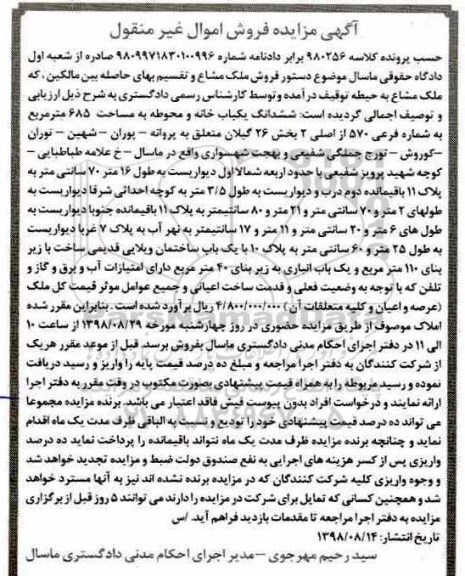 آگهی مزایده فروش اموال غیر منقول
حسب پرونده کلاسه ۹۸۰۲۵۶ برابر دادنامه شماره ۹۸۰۹۹۷۱۸۳۰۱۰۰۹۹۶ صادره از شعبه اول
دادگاه حقوقی ماسال موضوع دستور فروش ملک مشاع و تقسیم بهای حاصله بین مالکین ، که
ملک مشاع به حیطه توقیف در آمده و توسط کارشناس رسمی دادگستری به شرح ذیل ارزیابی
و توصیف اجمالی گردیده است: ششدانگ یکباب خانه و محوطه به مساحت ۶۸۵ مترمربع
به شماره فرعی ۵۷۰ از اصلی ۲ بخش ۲۶ گیلان متعلق به پروانه – پوران – شهین – توران
–کوروش – تورج جملگی شفیعی و بهجت شهسواری واقع در ماسال – خ علامه طباطبایی –
کوچه شهید پرویز شفیعی با حدود اربعه شمالا اول دیواریست به طول ۱۶ متر ۷۰ سانتی متر به
پلاک ۱۱ باقیمانده دوم درب و دیواریست به طول ۳/۵ متر به کوچه احداثی شرقا دیواریست به
طولهای ۲ متر و ۷۰ سانتی متر و ۲۱ متر و ۸۰ سانتیمتر به پلاک ۱۱ باقیمانده جنوبا دیواریست به
طول های ۶ متر و ۲۰ سانتی متر و ۱۱ متر و ۱۷ سانتیمتر به نهر آب به پلاک ۷ غربا دیواریست
به طول ۲۵ متر و ۶۰ سانتی متر به پلاک ۱۰ با یک باب ساختمان ویلایی قدیمی ساخت با زیر
بنای ۱۱۰ متر مربع و یک باب انباری به زیر بنای ۴۰ متر مربع دارای امتیازات آب و برق و گاز و
تلفن که با توجه به وضعیت فعلی و قدمت ساخت اعیانی و جمیع عوامل موثر قیمت کل ملک
(عرصه و اعیان و کلیه متعلقات آن) ۴/۸۰۰/۰۰۰/۰۰۰ ریال برآورد شده است . بنابراین مقرر شده
املاک موصوف از طریق مزایده حضوری در روز چهارشنبه مورخه ۱۳۹۸/۰۸/۲۹ از ساعت ۱۰
الی ۱۱ در دفتر اجرای احکام مدنی دادگستری ماسال بفروش برسد. قبل از موعد مقرر هریک
از شرکت کنندگان به دفتر اجرا مراجعه و مبلغ ده درصد قیمت پایه را واریز و رسید دریافت
نموده و رسید مربوطه را به همراه قیمت پیشنهادی بصورت مکتوب در وقت مقرر به دفتر اجرا
ارائه نمایند و درخواست افراد بدون پیوست فیش فاقد اعتبار می باشد. برنده مزایده مجموعا
می تواند ده درصد قیمت پیشنهادی خود را تودیع و نسبت به الباقی ظرف مدت یک ماه اقدام
نماید و چنانچه برنده مزایده ظرف مدت یک ماه نتواند باقیمانده را پرداخت نماید ده درصد
واریزی پس از کسر هزینه های اجرایی به نفع صندوق دولت ضبط و مزایده تجدید خواهد شد
و وجوه واریزی کلیه شرکت کنندگان که در مزایده برنده نشده اند نیز به آنها مسترد خواهد
شد و همچنین کسانی که تمایل برای شرکت در مزایده را دارند می توانند ۵ روز قبل از برگزاری
مزایده به دفتر اجرا مراجعه تا مقدمات بازدید فراهم آید. /س
تاریخ انتشار: ۱۳۹۸/۰۸/۱۴
سید رحیم مهرجوی –مدیر اجرای احکام مدنی دادگستری ماسال